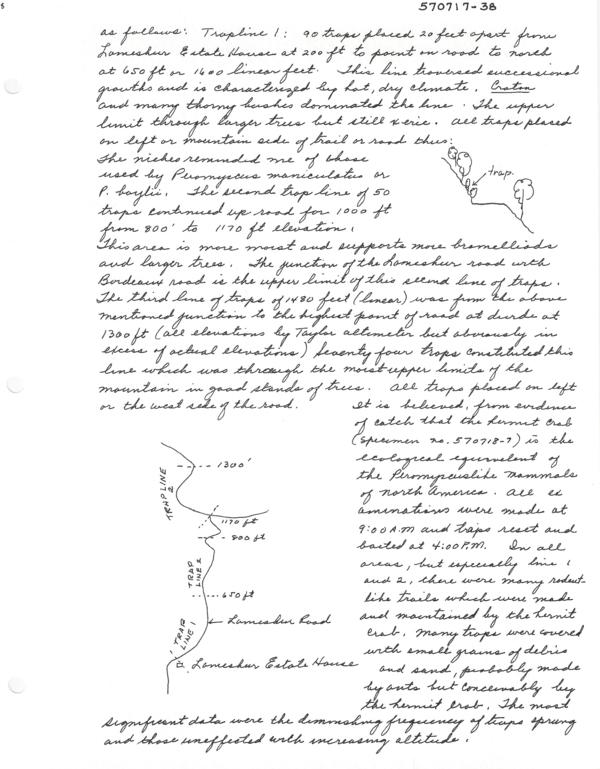 570717-38
as follows: Trapline 1: 90 traps placed 20 feet apart from
Lameshur Estate House at 200 ft to point on road to north
at 650 ft or 1600 linear feet. This line traversed successional
growths and is characterized by hot, dry climate. Croton
and many thorny bushes dominated the line. The upper
limit through larger trees but still xeric. All traps placed
on left or mountain side of trail or road thus:
The niches reminded me of those
used by Peromyscus maniculatus or
P. boylii. The second trap line of 50
traps continued up road for 1000 ft
from 800' to 1170 ft elevation.
trap.
This area is more moist and supports more bromelliads
and larger trees. The junction of the Lameshur road with
Bordeaux road is the upper limit of this second line of traps.
The third line of traps of 1480 feet (linear) was from the above
mentioned junction to the highest point of road at
1300 ft (all elevations by Taylor altimeter but obviously in
excess of actual elevations) Seventy four traps constituted this
line which was through the moist upper limits of the
mountain in good stands of trees. All traps placed on left
or the west side of the road.
It is believed, from evidence
of catch that the hermit crab
(specimen no. 570718-7) is the
ecological equivelent of
the Peromyscuslike mammals
of North America. All ex
aminations were made at
9:00 A.M and traps reset and
baited at 4:00 P.M. In all
areas, but especially line 1
and 2, there were many rodent-
like trails which were made
and maintained by the hermit
crab. Many traps were covered
with small grains of debris
and sand, probably made
by ants but conceivably by
the hermit crab. The most
significant data were the diminishing frequency of traps sprung
and those uneffected with increasing altitude.
1300'
TRAP LINE
1170 ft
800 ft
TRAP
LINE 2
650 ft
Lameshur Road
TRAP
LINE 1
Lameshur Estate House